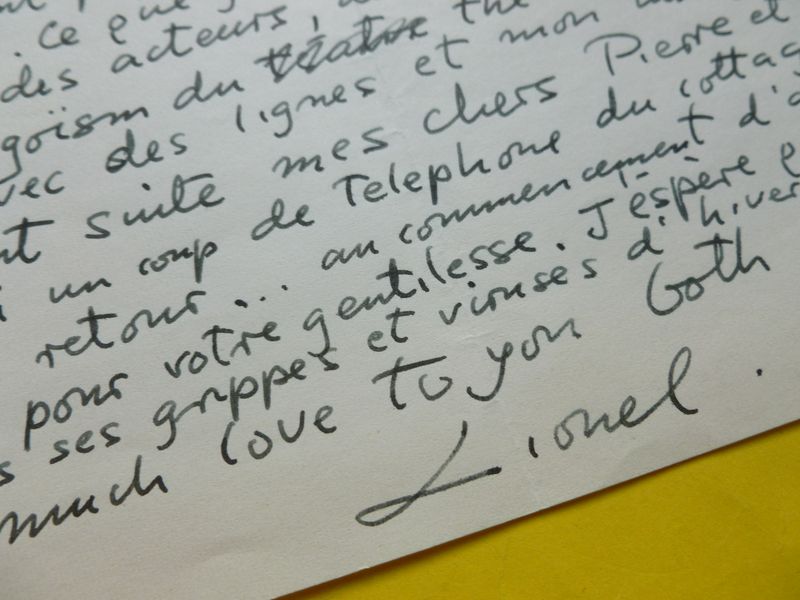 . Ce que
des acteurs,
goïsm du the
vec des lignes et mon
nt suite mes chers Pierre et
i un coup de Telephone du cottag
retour... au commencement d'a
pour votre gentilesse. J'éspère e
s ses grippes et viruses d'hiver
much love to you both
Lionel.